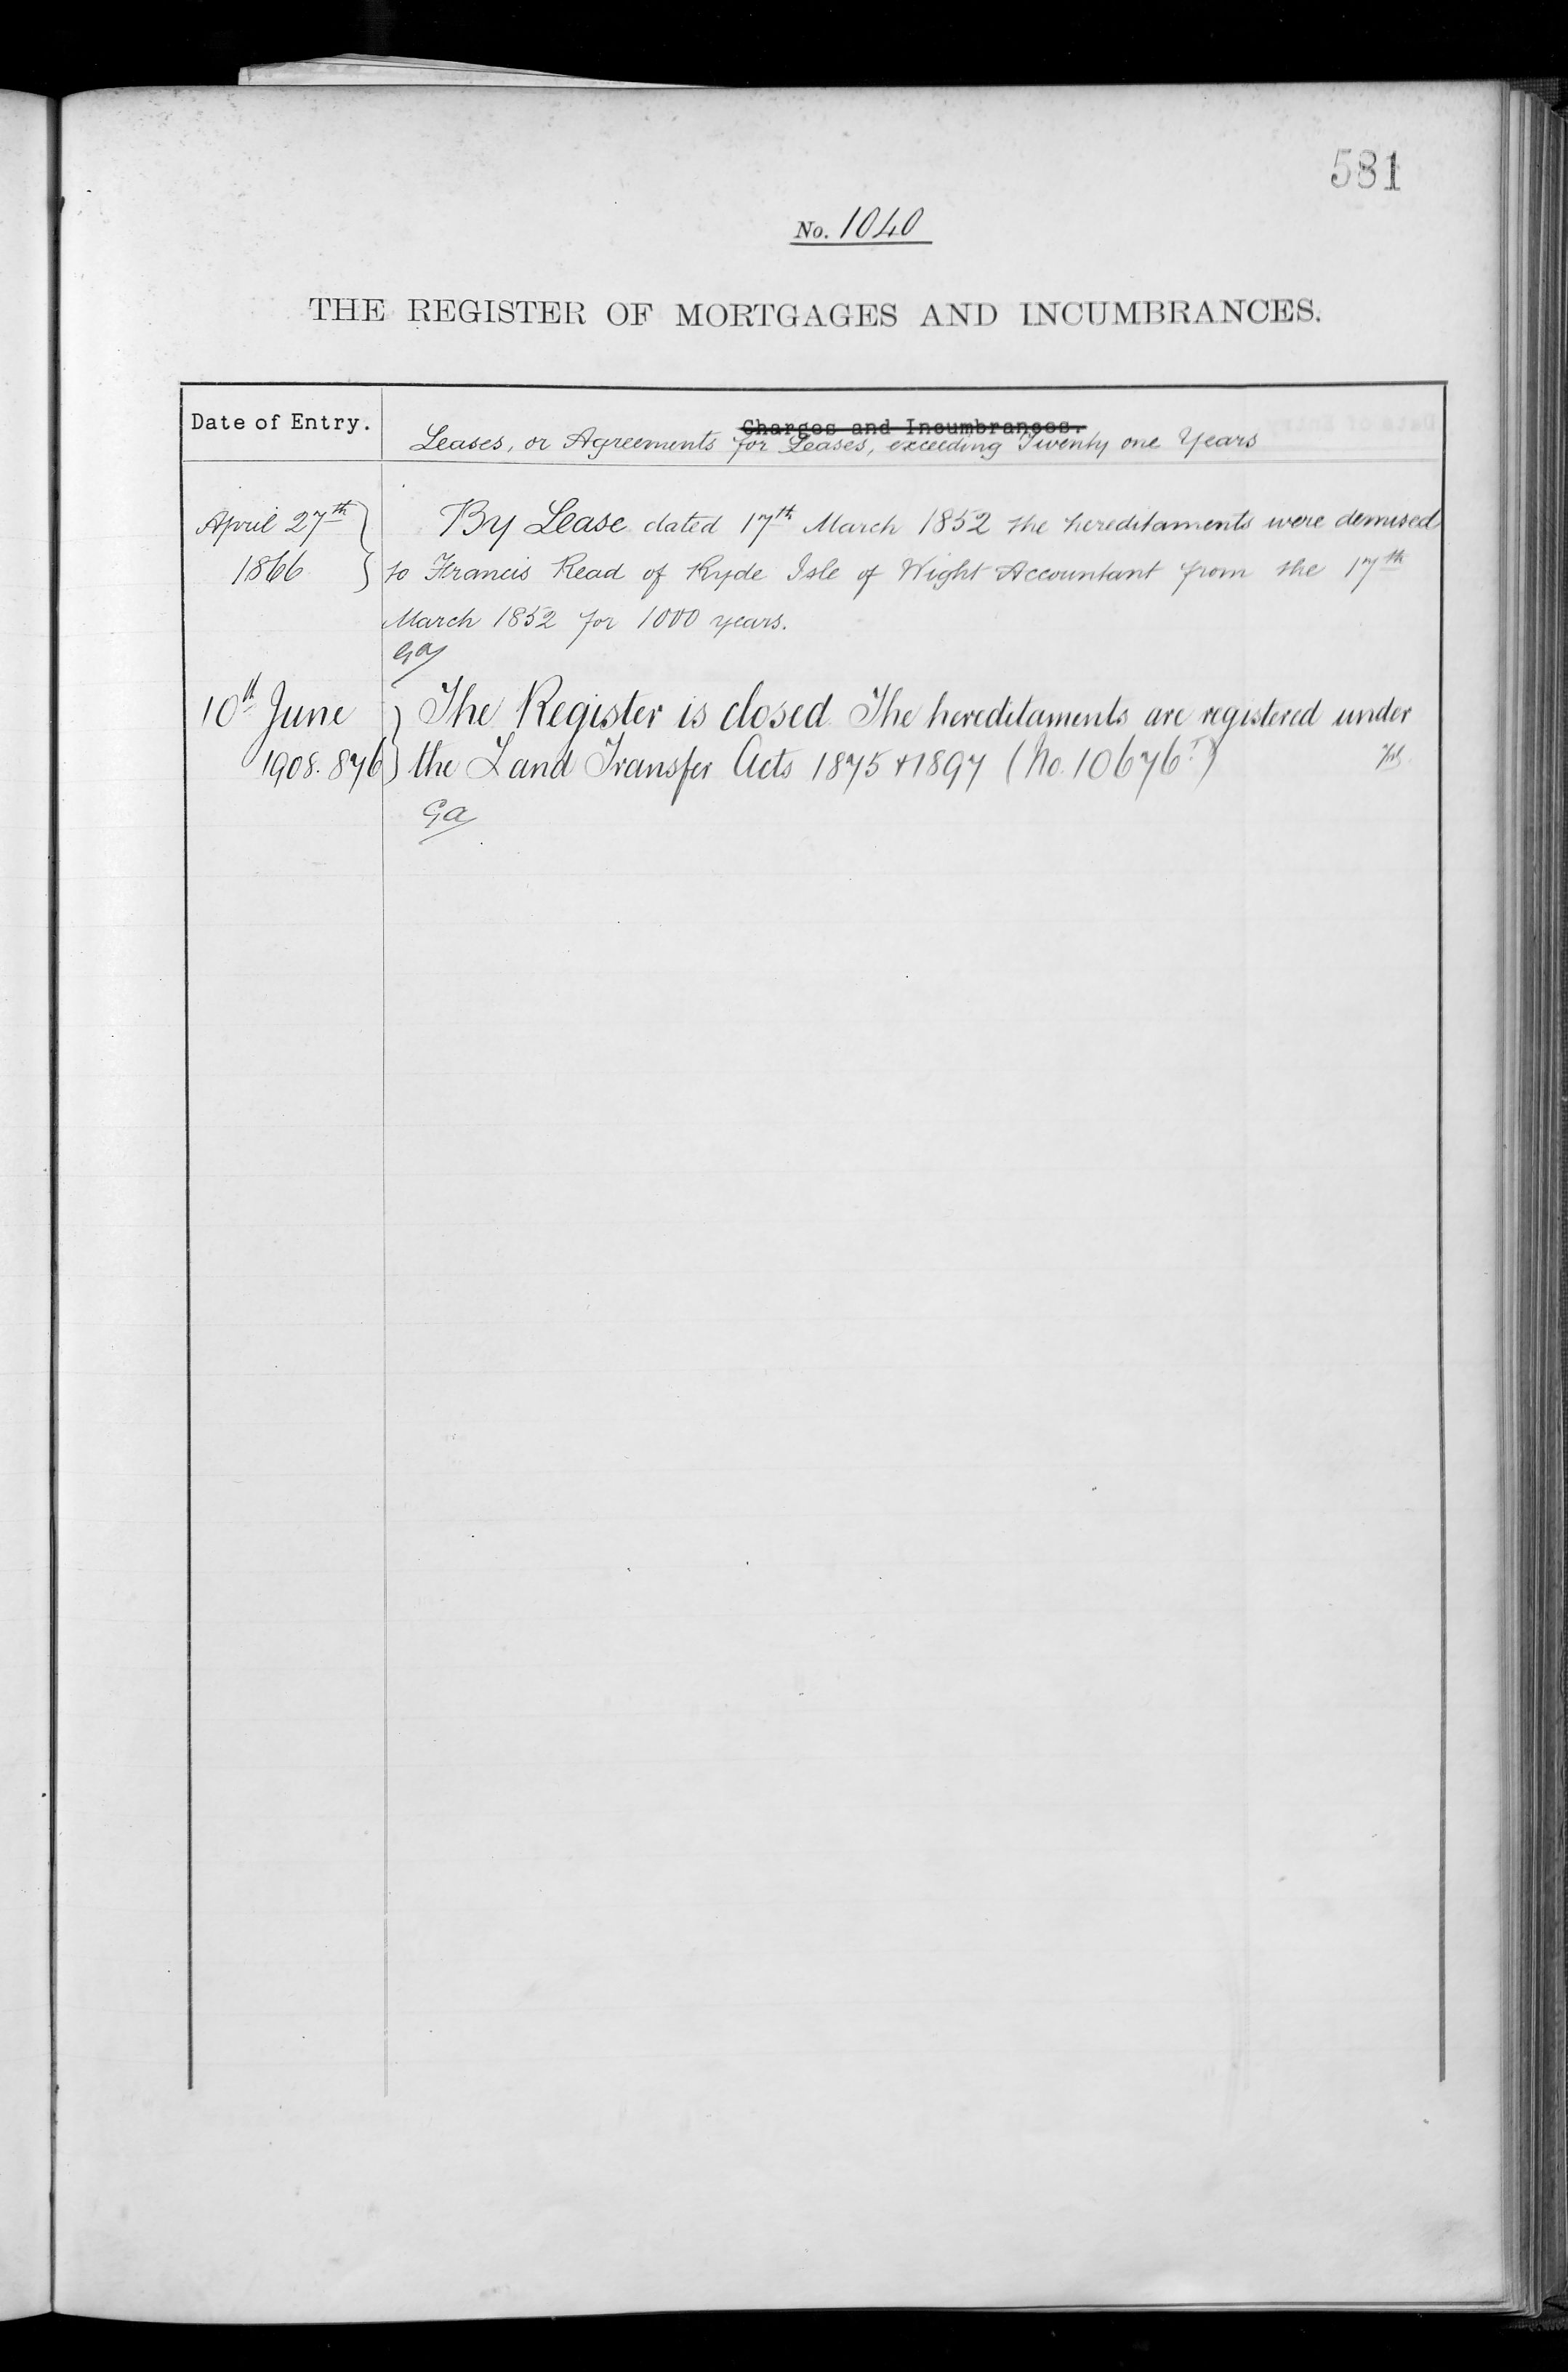 581
No. 1040
THE REGISTER OF MORTGAGES AND INCUMBRANCES.
Date of Entry.
Charges and Incumbrances.
Leases, or Agreements for Leases, exceeding Twenty one Years
April 27th By Lease dated 17th March 1852 the hereditaments were demised
1866 to Francis Read of Ryde Isle of Wight Accountant from the 17th
March 1852 for 1000 years.
Ga
10th June The Register is closed. The hereditaments are registered under
1908. 876 the Land Transfer Acts 1875 & 1897 (No. 10676)
Ga